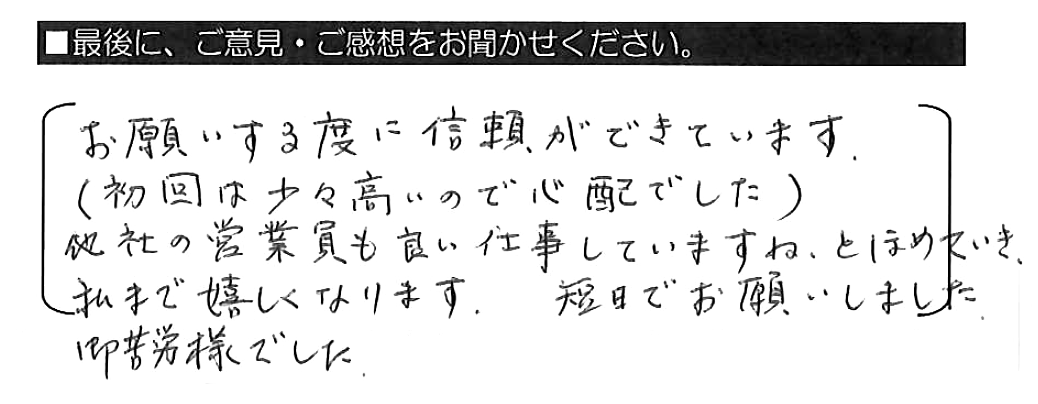 ■最後に、ご意見・ご感想をお聞かせください。
お願いする度に信頼ができています.
(初回は少々高いので心配でした)
他社の営業員も良い仕事していますね、とほめていき、
私まで嬉しくなります. 短日でお願いしました.
御苦労様でした.